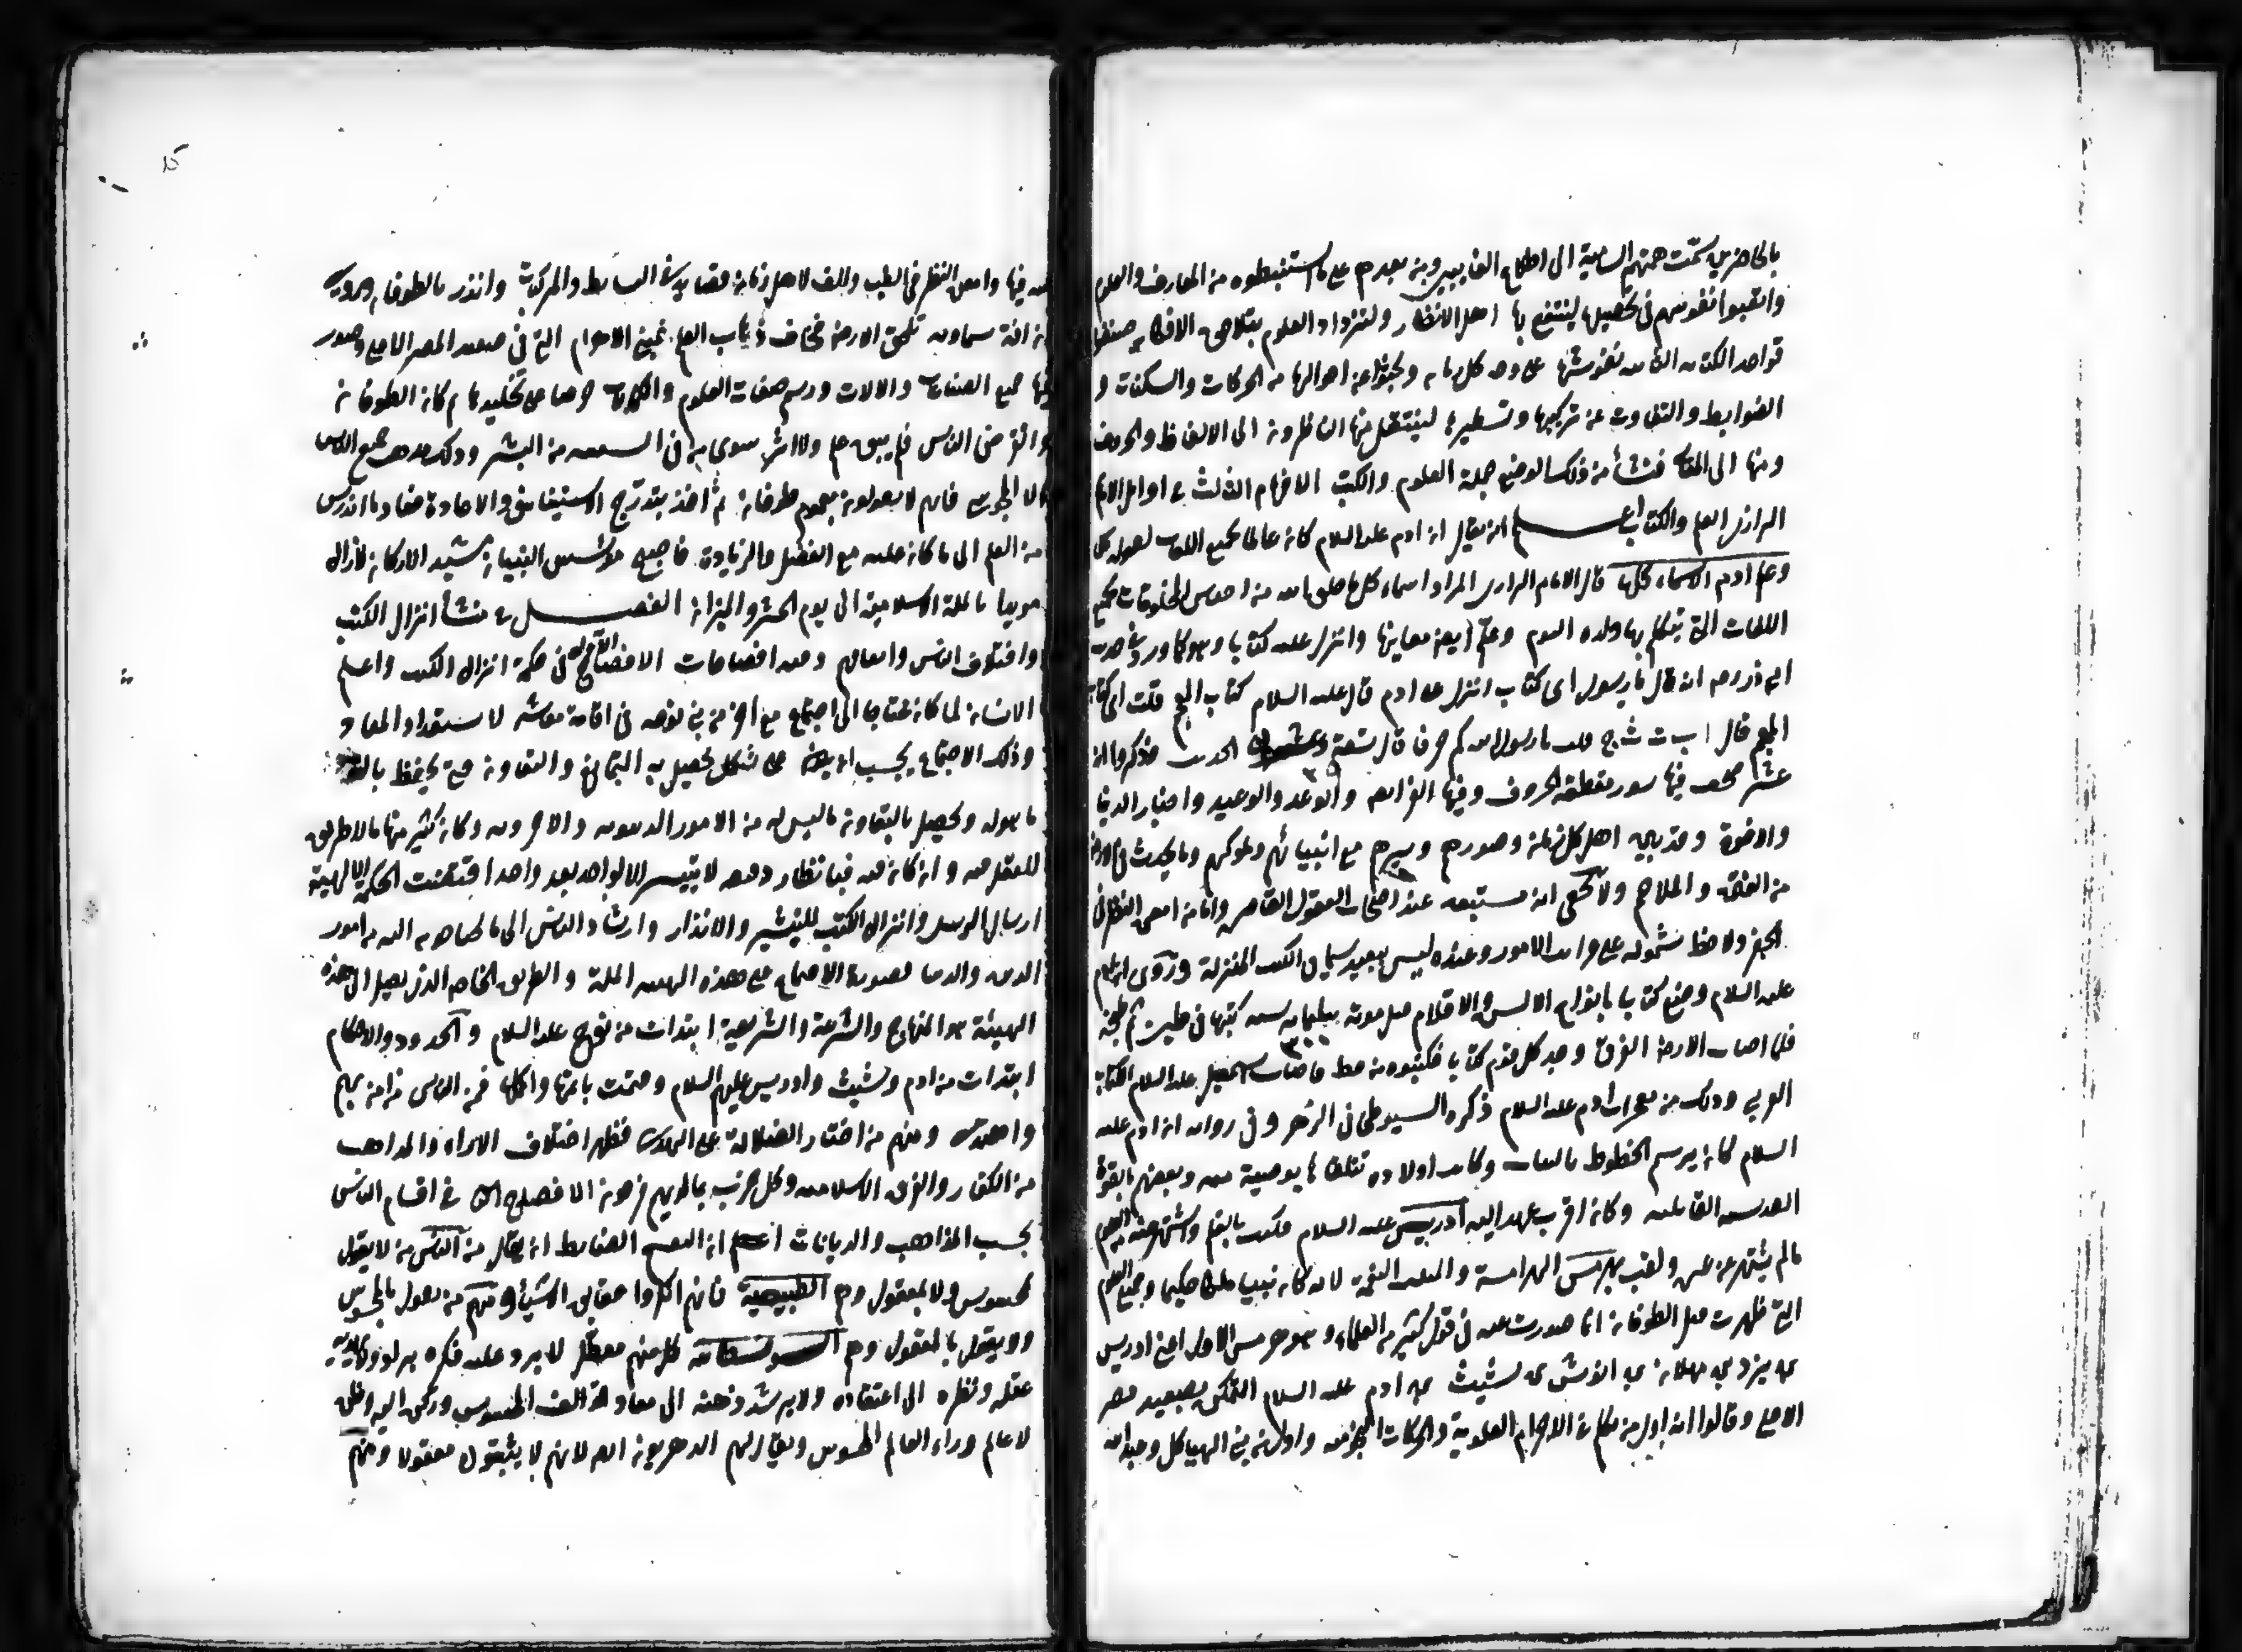 بالحاضرين سمت همتهم السامية الى اطلاع الغايبين ومن بعدهم على ما استنبطوه من المعارف والعلوم
واتعبوا نفوسهم فى تحصيلها لينتفع بها اهل الانظار ولتزداد العلوم بتلاحق الافكار فصنفوا
قواعد الكتابه الثابته نقوشها على وجه كل زمان وبحثوا عن احوالها من الحركات والسكنات و
الضوابط والتفاوت عن تركيبها وتسطيرها لينتقل منها الناظرون الى الالفاظ والحروف
ومنها الى المعانى فنشأ من ذلك الوضع جملة العلوم والكتب الافهام الثالث فى اوايل الانام
العلم والكتاب اعلم انه يقال ان ادم عليه السلام كان عالما بجميع اللغات لقوله تعالى
وعلم ادم الاسماء كلها قال الامام الرازى المراد اسماء كل ما خلق الله من اجناس المخلوقات بجميع
اللغات التى يتكلم بها ولده اليوم وعلم ايضا معانيها وانزل عليه كتابا وهو كما ورد فى حديث
ابى ذر رم انه قال يا رسول اى كتاب انزل على ادم قال عليه السلام كتاب المعجم قلت اى كتاب
المعجم قال ا ب ت ث ج قلت يا رسول الله كم حرفا قال تسعة وعشرون الحديث وذكروا انه
عشر صحف فيها سور مقطعة الحروف وفيها الفرائض والوعد والوعيد واخبار الدنيا
والاخرة وقد بين اهل كل زمان وصورهم وسيرهم مع انبيائهم وملوكهم وما يحدث فى الارض
من الفتن والملاحم ولا يخفى انه مستبعد عند اصحاب العقول القاصرة واما من امعن النظر فى
الجفر ولاحظ شموله على غرايب الامور وعنده ليس ببعيد سيما فى الكتب المنزلة وروى ان ادم
عليه السلام وضع كتابا بانواع الالسن والاقلام قبل موته بثلثمايه سنه كتبها فى طين ثم طبخه
٣٠٠
فلما اصاب الارض الغرق وجد كل قوم كتابا فكتبوه من خطه فاصاب اسمعيل عليه السلام الكتاب
العربى وذلك من معجزات ادم عليه السلام ذكره السيوطى فى المزهر وفى رواية ان ادم عليه
السلام كان يرسم الخطوط بالبنان وكانت اولاده تتلقاها بوصية منه وبعضهم بالقوة
القدسيه القابليه وكان اقرب عهد اليه ادريس عليه السلام فكتب بالقلم واشتهر عنه من العلوم
مالم يشتهر عن غيره ولقب بهرمس الهرامسة والمثلث النعمة لانه كان نبيا ملكا حكيما وجميع العلوم
التى ظهرت قبل الطوفان انما صدرت عنه فى قول كثير من العلماء وهو هرمس الاول اعنى ادريس
بن يزد بن مهلان بن انوش بن شيث بن ادم عليه السلام المتمكن بصعيد مصر
الاعلى وقالوا انه اول من تكلم فى الاجرام العلوية والحركات النجوميه واول من بنى الهياكل وعبد الله
فيها وامعن النظر فى الطب والف لاهل زمانه قصايد فى البسايط والمركبات وانذر بالطوفان ورأى
ان افة سماويه تلحق الارض فخاف ذهاب العلم فبنى الاهرام التى فى صعيد المصر الاعلى وصور
فيها جميع الصناعات والالات ورسم صفات العلوم والكمالات حرصا على تخليدها ثم كان الطوفان
وانقرض الناس فلم يبق علم ولا اثر سوى من فى السفينه من البشر وذلك مذهب جميع الناس
الا المجوس فانهم لا يقولون بعموم طوفان ثم اخذ بتدرج الاستيناف والاعادة فعاد ما اندرس
من العلم الى ما كان عليه مع الفضل والزيادة فاصبح مؤسس البنيان مشيد الاركان لازال
مويدا بالملة الاسلامية الى يوم الحشر والميزان الفصل فى منشأ انزال الكتب
واختلاف الناس وانقسامهم وفيه افصاحات الافصاح الاول فى حكمة انزال الكتب واعلم
الانسان لما كان محتاجا الى اجتماع مع اخر من بنى نوعه فى اقامة معاشه لاستعداد المعاد و
وذلك الاجتماع يجب ان يكون على شكل يحصل به التمانع والتعاون حتى يحفظ بالتمانع
ما هو له ويحصل بالتعاون ماليس له من الامور الدنيويه والاخرويه وكان كثير منها مالا طريق
للعقل فيه وان كان فيه فبانظار دقيقه لا تتيسر الا لواحد بعد واحد اقتضت الحكمة الالهية
ارسال الرسل وانزال الكتب للتبشير والانذار وارشاد الناس الى ما يحتاجون اليه من امور
الدين والدنيا فصورة الاجتماع على هذه الهيئه الملة والطريق الخاص الذى يصل الى هذه
الهيئة هو المنهاج والشرعة والشريعة ابتدات من نوح عليه السلام والحدود والاحكام
ابتدات من ادم وشيث وادريس عليهم السلام وختمت باتمها واكملها فمن الناس من امن بهم
واهتدى ومنهم من اختار الضلالة على الهدى فظهر اختلاف الاراء والمذاهب
من الكفار والفرق الاسلاميه وكل حزب بما لديهم فرحون الافصاح الثانى فى اقسام الناس
بحسب المذاهب والديانات اعلم ان التقسيم الضابط ان يقال من الناس من لا يقول
بمحسوس ولا بمعقول وهم الطبيعية فانهم انكروا حقايق الاشياء ومنهم من يقول بالمحسوس
ولا يقول بالمعقول وهم السوفسطائيه كل منهم معطل لا يرد عليه فكره براد ولا يهديه
عقله ونظره الى اعتقاده ولا يرشده ذهنه الى معاد قد الف المحسوس وركن اليه وظن
لا عالم وراء العالم المحسوس ويقال لهم الدهريون ايضا لانهم لا يثبتون معقولا ومنهم